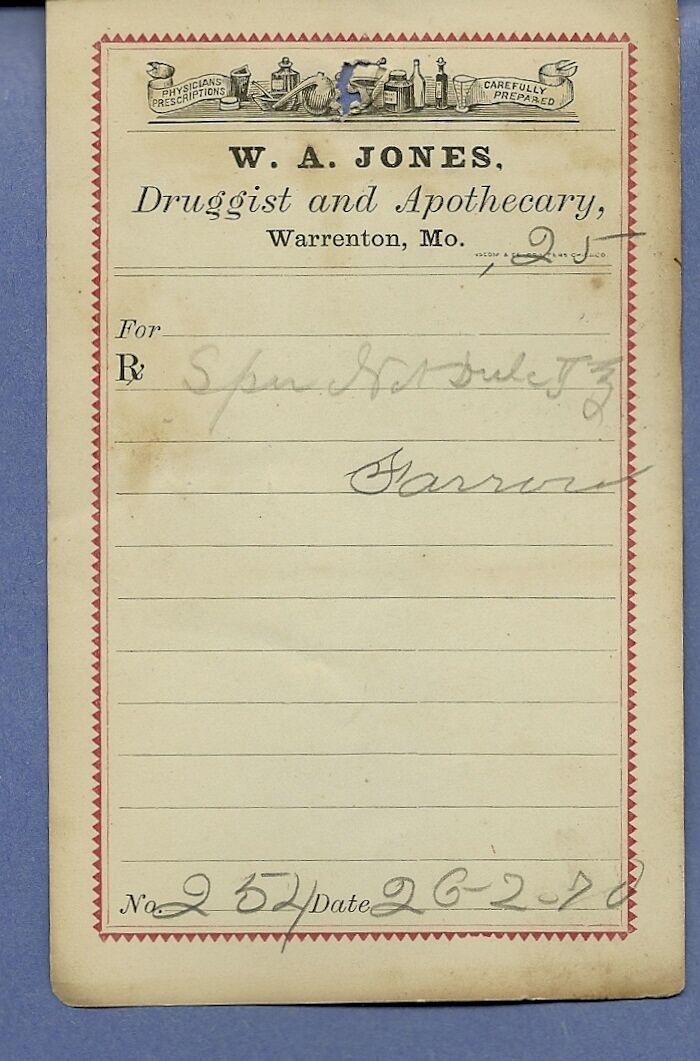 PHYSICIANS PRESCRIPTIONS CAREFULLY PREPARED
W. A. JONES,
Druggist and Apothecary,
Warrenton, Mo.
,25
For
℞ Spir Nit Dulc
Farrow
No. 254 Date 26-2-70